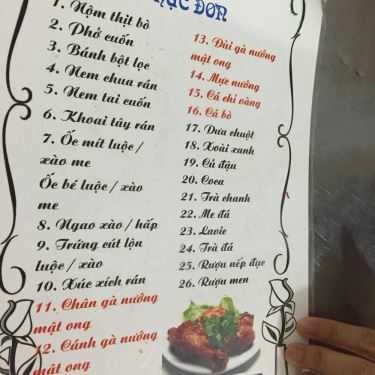 ỰC ĐƠN
1. Nộm thịt bò
2. Phở cuốn
3. Bánh bột lọc
4. Nem chua rán
5. Nem tai cuốn
6. Khoai tây rán
7. Ốc mít luộc /
xào me
Ốc bé luộc / xào
me
8. Ngao xào / hấp
9. Trứng cút lộn
luộc / xào
10. Xúc xích rán
11. Chân gà nướng
mật ong
12. Cánh gà nướng
mật ong
13. Đùi gà nướng
mật ong
14. Mực nướng
15. Cá chỉ vàng
16. Cá bò
17. Dưa chuột
18. Xoài xanh
19. Củ đậu
20. Coca
21. Trà chanh
22. Me đá
23. Lavie
24. Trà đá
25. Rượu nếp đục
26. Rượu men